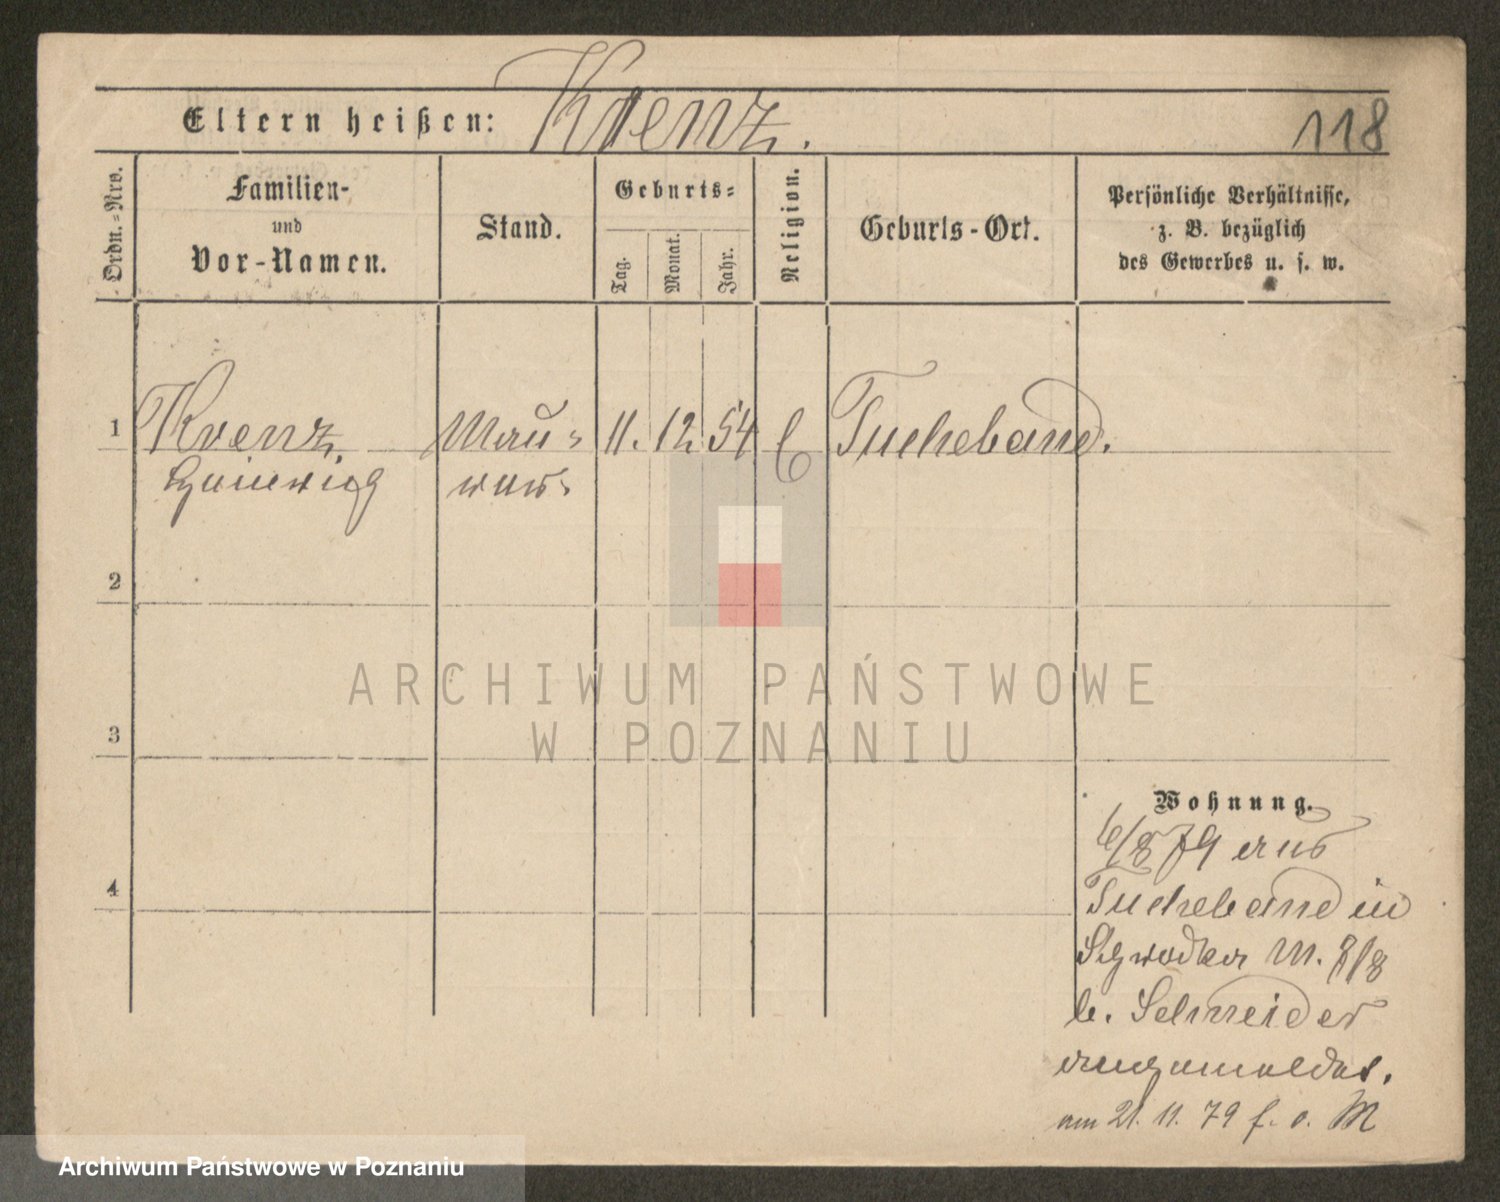 Eltern heißen: Krenz. 118
Ordn.-Nro.
Familien-
und
Vor-Namen.
Stand.
Geburts-
Tag.
Monat.
Jahr.
Religion.
Geburts-Ort.
Persönliche Verhältnisse,
z. B. bezüglich
des Gewerbes u. s. w.
1 Krenz, Mau- 11. 12 54 Tucheband.
Heinrich rer
2
3
4
Wohnung.
6/8 79 aus
Tucheband in
M. 8/8
b. Schneider
angemeldet.
am 21. 11. 79 f. o. M
ARCHIWUM PAŃSTWOWE
W POZNANIU
Archiwum Państwowe w Poznaniu